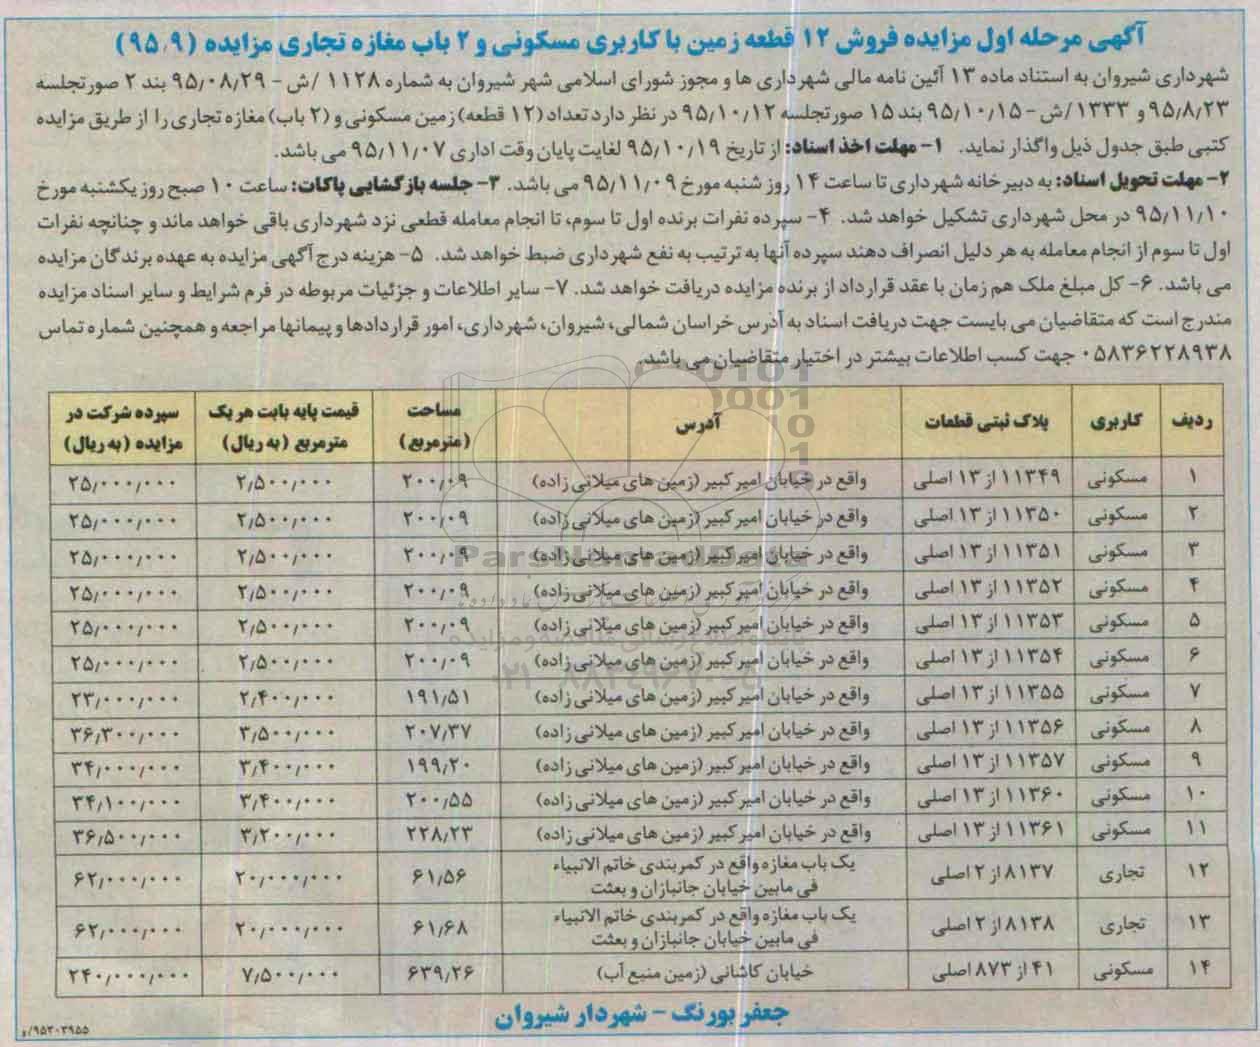 آگهی مرحله اول مزایده فروش ۱۲ قطعه زمین با کاربری مسکونی و ۲ باب مغازه تجاری مزایده (۹۵،۹)
شهرداری شیروان به استناد ماده ۱۳ آئین نامه مالی شهرداری ها و مجوز شورای اسلامی شهر شیروان به شماره ۱۱۲۸ /ش - ۹۵/۰۸/۲۹ بند ۲ صورتجلسه
۹۵/۸/۲۳ و ۱۳۳۳ /ش - ۹۵/۱۰/۱۵ بند ۱۵ صورتجلسه ۹۵/۱۰/۱۲ در نظر دارد تعداد (۱۲ قطعه) زمین مسکونی و (۲ باب) مغازه تجاری را از طریق مزایده
کتبی طبق جدول ذیل واگذار نماید. ۱- مهلت اخذ اسناد: از تاریخ ۹۵/۱۰/۱۹ لغایت پایان وقت اداری ۹۵/۱۱/۰۷ می باشد.
۲- مهلت تحویل اسناد: به دبیرخانه شهرداری تا ساعت ۱۴ روز شنبه مورخ ۹۵/۱۱/۰۹ می باشد. ۳- جلسه بازگشایی پاکات: ساعت ۱۰ صبح روز یکشنبه مورخ
۹۵/۱۱/۱۰ در محل شهرداری تشکیل خواهد شد. ۴- سپرده نفرات برنده اول تا سوم، تا انجام معامله قطعی نزد شهرداری باقی خواهد ماند و چنانچه نفرات
اول تا سوم از انجام معامله به هر دلیل انصراف دهند سپرده آنها به ترتیب به نفع شهرداری ضبط خواهد شد. ۵- هزینه درج آگهی مزایده به عهده برندگان مزایده
می باشد. ۶- کل مبلغ ملک هم زمان با عقد قرارداد از برنده مزایده دریافت خواهد شد. ۷- سایر اطلاعات و جزئیات مربوطه در فرم شرایط و سایر اسناد مزایده
مندرج است که متقاضیان می بایست جهت دریافت اسناد به آدرس خراسان شمالی، شیروان، شهرداری، امور قراردادها و پیمانها مراجعه و همچنین شماره تماس
۰۵۸۳۶۲۲۸۹۳۸ جهت کسب اطلاعات بیشتر در اختیار متقاضیان می باشد.
ردیف کاربری پلاک ثبتی قطعات آدرس مساحت (مترمربع) قیمت پایه بابت هر یک مترمربع (به ریال) سپرده شرکت در مزایده (به ریال)
۱ مسکونی ۱۱۳۴۹ از ۱۳ اصلی واقع در خیابان امیرکبیر (زمین های میلانی زاده) ۲۰۰/۰۹ ۲/۵۰۰/۰۰۰ ۲۵/۰۰۰/۰۰۰
۲ مسکونی ۱۱۳۵۰ از ۱۳ اصلی واقع در خیابان امیرکبیر (زمین های میلانی زاده) ۲۰۰/۰۹ ۲/۵۰۰/۰۰۰ ۲۵/۰۰۰/۰۰۰
۳ مسکونی ۱۱۳۵۱ از ۱۳ اصلی واقع در خیابان امیرکبیر (زمین های میلانی زاده) ۲۰۰/۰۹ ۲/۵۰۰/۰۰۰ ۲۵/۰۰۰/۰۰۰
۴ مسکونی ۱۱۳۵۲ از ۱۳ اصلی واقع در خیابان امیرکبیر (زمین های میلانی زاده) ۲۰۰/۰۹ ۲/۵۰۰/۰۰۰ ۲۵/۰۰۰/۰۰۰
۵ مسکونی ۱۱۳۵۳ از ۱۳ اصلی واقع در خیابان امیرکبیر (زمین های میلانی زاده) ۲۰۰/۰۹ ۲/۵۰۰/۰۰۰ ۲۵/۰۰۰/۰۰۰
۶ مسکونی ۱۱۳۵۴ از ۱۳ اصلی واقع در خیابان امیرکبیر (زمین های میلانی زاده) ۲۰۰/۰۹ ۲/۵۰۰/۰۰۰ ۲۵/۰۰۰/۰۰۰
۷ مسکونی ۱۱۳۵۵ از ۱۳ اصلی واقع در خیابان امیرکبیر (زمین های میلانی زاده) ۱۹۱/۵۱ ۲/۴۰۰/۰۰۰ ۲۳/۰۰۰/۰۰۰
۸ مسکونی ۱۱۳۵۶ از ۱۳ اصلی واقع در خیابان امیرکبیر (زمین های میلانی زاده) ۲۰۷/۳۷ ۳/۵۰۰/۰۰۰ ۳۶/۳۰۰/۰۰۰
۹ مسکونی ۱۱۳۵۷ از ۱۳ اصلی واقع در خیابان امیرکبیر (زمین های میلانی زاده) ۱۹۹/۲۰ ۳/۴۰۰/۰۰۰ ۳۴/۰۰۰/۰۰۰
۱۰ مسکونی ۱۱۳۶۰ از ۱۳ اصلی واقع در خیابان امیرکبیر (زمین های میلانی زاده) ۲۰۰/۵۵ ۳/۴۰۰/۰۰۰ ۳۴/۱۰۰/۰۰۰
۱۱ مسکونی ۱۱۳۶۱ از ۱۳ اصلی واقع در خیابان امیرکبیر (زمین های میلانی زاده) ۲۲۸/۲۳ ۳/۲۰۰/۰۰۰ ۳۶/۵۰۰/۰۰۰
۱۲ تجاری ۸۱۳۷ از ۲ اصلی یک باب مغازه واقع در کمربندی خاتم الانبیاء فی مابین خیابان جانبازان و بعثت ۶۱/۵۶ ۲۰/۰۰۰/۰۰۰ ۶۲/۰۰۰/۰۰۰
۱۳ تجاری ۸۱۳۸ از ۲ اصلی یک باب مغازه واقع در کمربندی خاتم الانبیاء فی مابین خیابان جانبازان و بعثت ۶۱/۶۸ ۲۰/۰۰۰/۰۰۰ ۶۲/۰۰۰/۰۰۰
۱۴ مسکونی ۴۱ از ۸۷۳ اصلی خیابان کاشانی (زمین منبع آب) ۶۳۹/۲۶ ۷/۵۰۰/۰۰۰ ۲۴۰/۰۰۰/۰۰۰
جعفر بورنگ - شهردار شیروان
۹۵۲۰۳۹۵۵/و